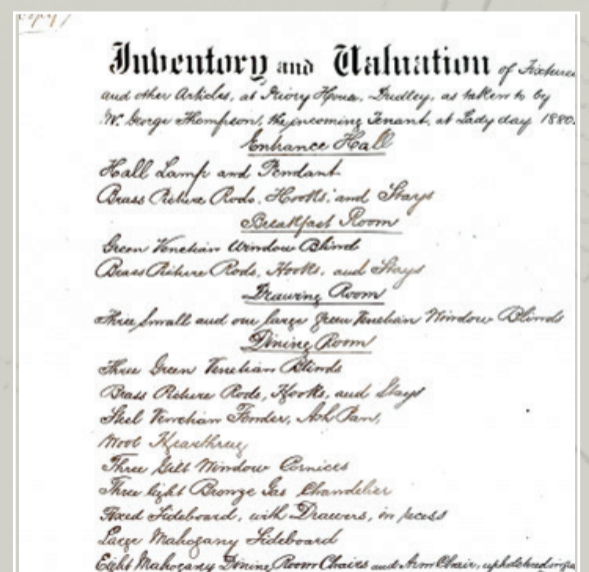 Copy/
Inventory and Valuation of Fixtures
and other Articles, at Priory House, Dudley, as taken to by
Mr. George Thompson, the incoming Tenant, at Lady day 1880.
Entrance Hall
Hall Lamp and Pendant
Brass Picture Rods, Hooks, and Stays
Breakfast Room
Green Venetian Window Blind
Brass Picture Rods, Hooks, and Stays
Drawing Room
Three small and one large green Venetian Window Blinds
Dining Room
Three Green Venetian Blinds
Brass Picture Rods, Hooks, and Stays
Steel Venetian Fender, Ash Pan,
Wool Hearthrug
Three Gilt Window Cornices
Three light Bronze Gas Chandelier
Fixed Sideboard, with Drawers, in recess
Large Mahogany Sideboard
Eight Mahogany Dining Room Chairs and Arm Chair, upholstered in